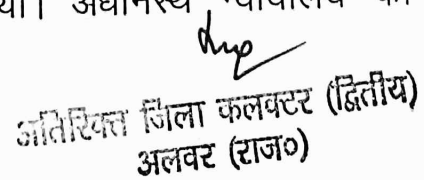 अधीनस्थ न्यायालय
अतिरिक्त जिला कलक्टर (द्वितीय)
अलवर (राज०)